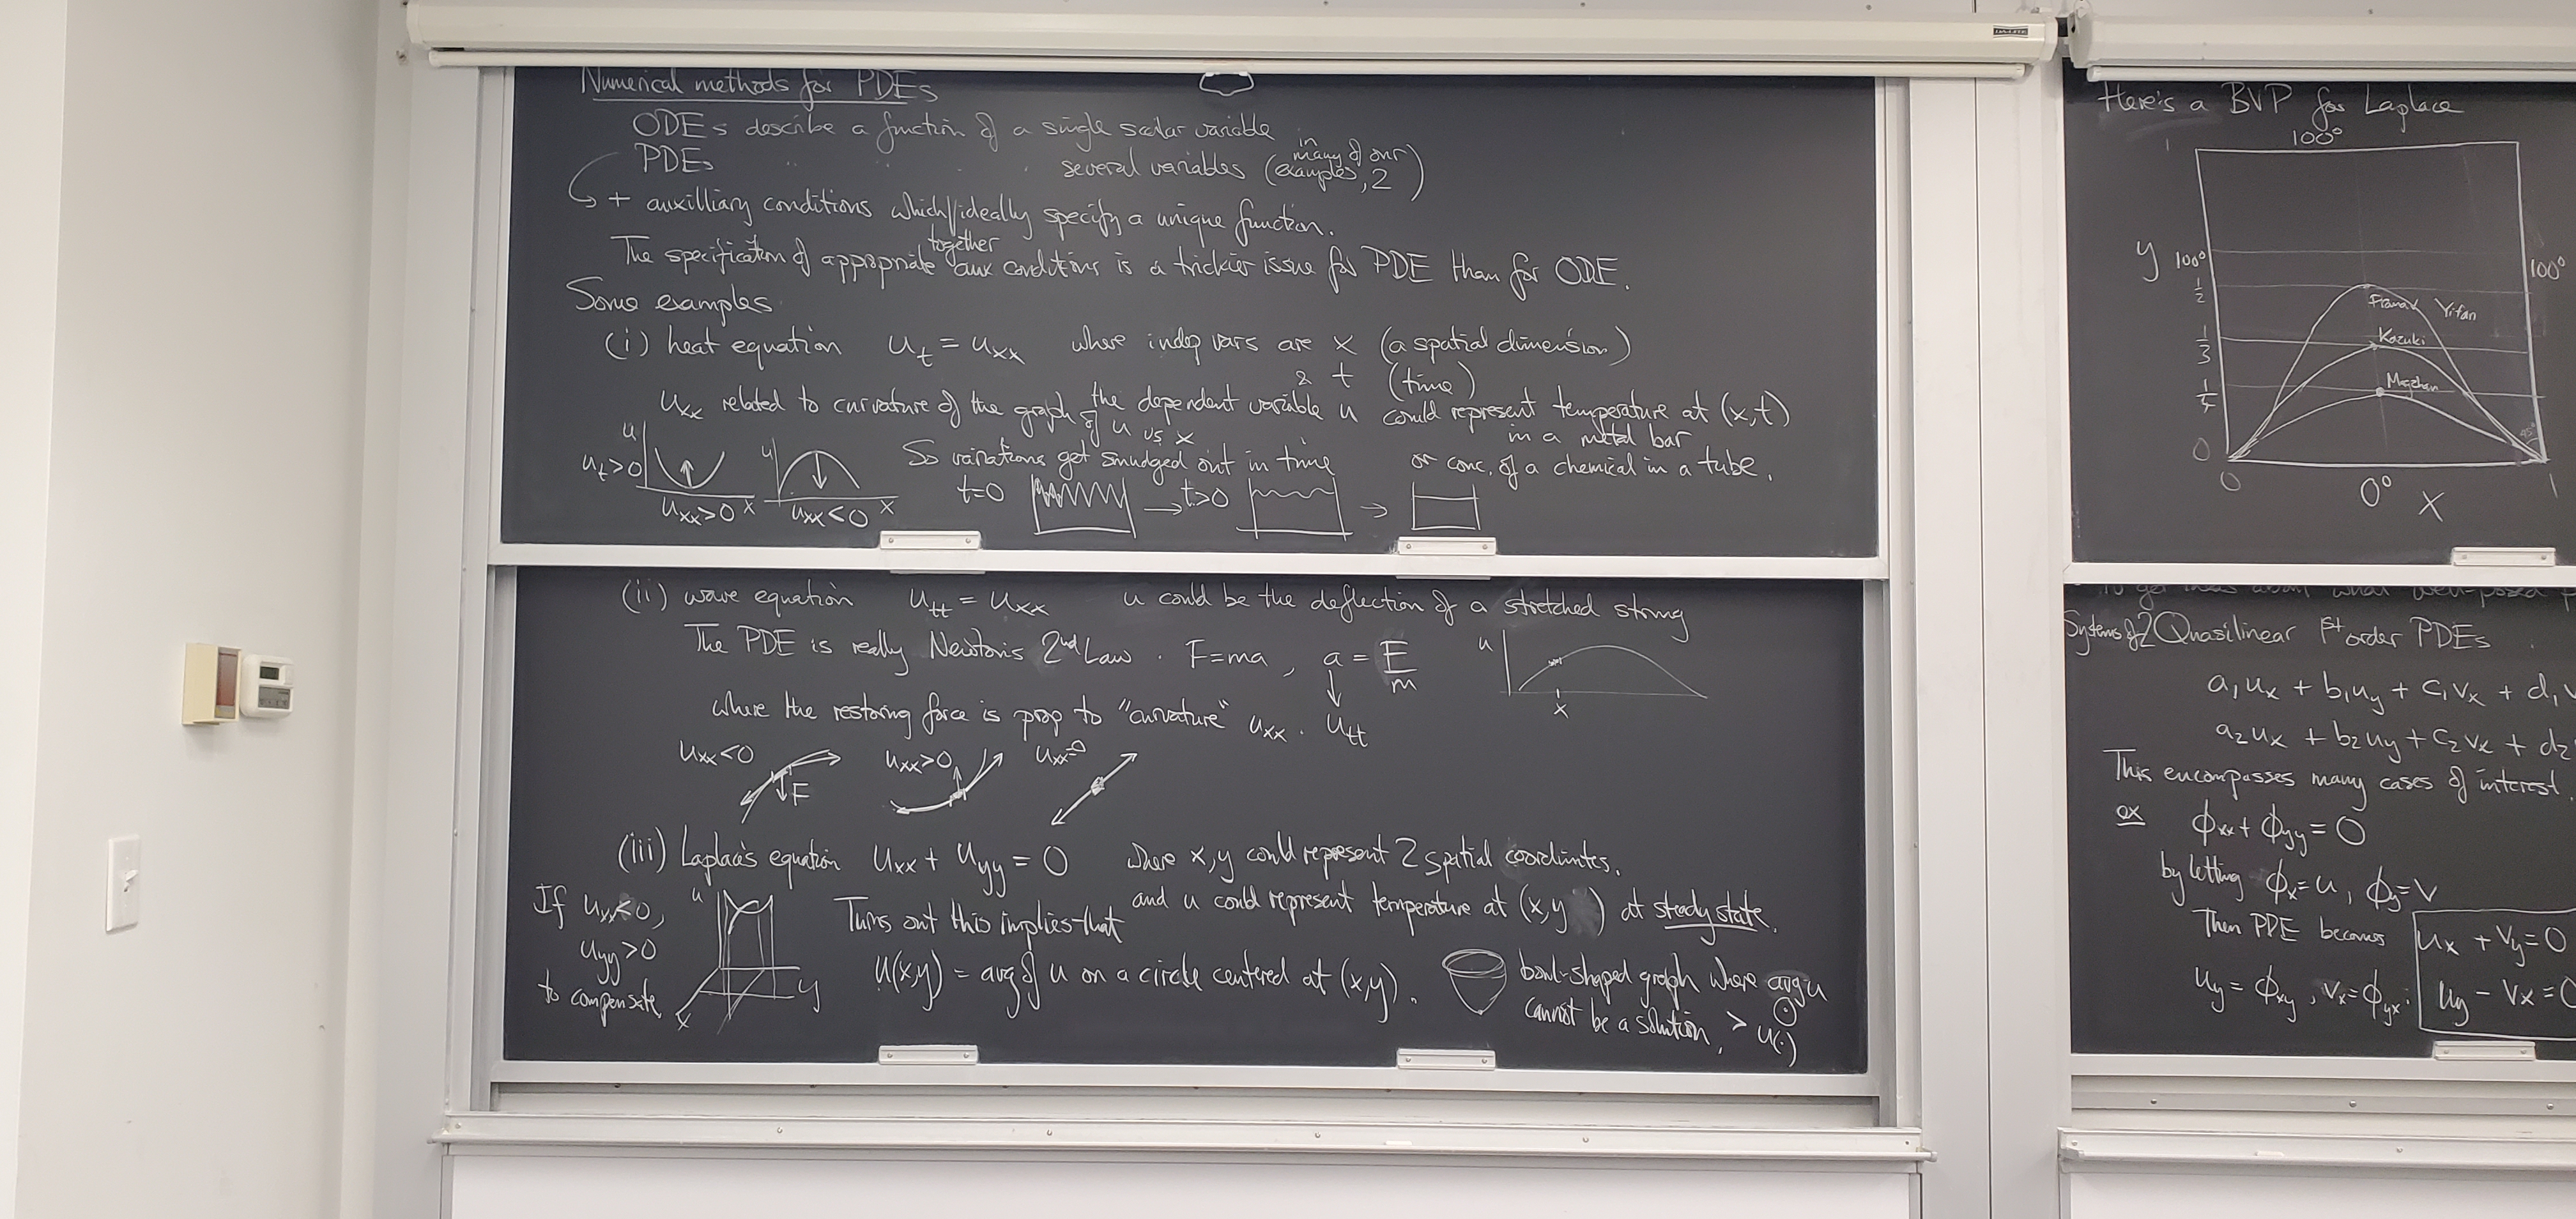 Numerical methods for PDEs
ODEs describe a function of a single scalar variable
PDEs " " " several variables (in many of our examples, 2)
+ auxilliary conditions which together ideally specify a unique function.
The specification of appropriate aux conditions is a trickier issue for PDE than for ODE.
Some examples
(i) heat equation u_t = u_xx where indep vars are x (a spatial dimension)
& t (time)
u_xx related to curvature of the graph of u vs x
the dependent variable u could represent temperature at (x,t)
in a metal bar
or conc. of a chemical in a tube.
So variations get smudged out in time
u_t>0 u u
u_xx>0 x u_xx<0 x
t=0 → t>0 →
(ii) wave equation u_tt = u_xx u could be the deflection of a stretched string
The PDE is really Newton's 2nd Law. F=ma, a = F/m
u x
where the restoring force is prop to "curvature" u_xx. u_tt
u_xx<0 F u_xx>0 u_xx=0
(iii) Laplace's equation u_xx + u_yy = 0 where x,y could represent 2 spatial coordinates.
and u could represent temperature at (x,y) at steady state.
If u_xx<0,
u_yy>0
to compensate
u y x
Turns out this implies that
u(x,y) = avg of u on a circle centered at (x,y).
bowl-shaped graph where avg u
cannot be a solution, > u(·)
Here's a BVP for Laplace
100°
1
y 100° 100°
1/2 Yifan
1/3 Kazuki
1/4
45°
0
0 0° x 1
Systems of 2 Quasilinear 1st order PDEs.
a₁u_x + b₁u_y + c₁v_x + d₁
a₂u_x + b₂u_y + c₂v_x + d₂
This encompasses many cases of interest.
ex ϕ_xx + ϕ_yy = 0
by letting ϕ_x = u, ϕ_y = v
Then PDE becomes u_x + v_y = 0
u_y = ϕ_xy, v_x = ϕ_yx: u_y - v_x = 0